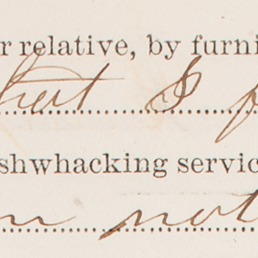 r relative, by furni
that I
shwhacking servic
not